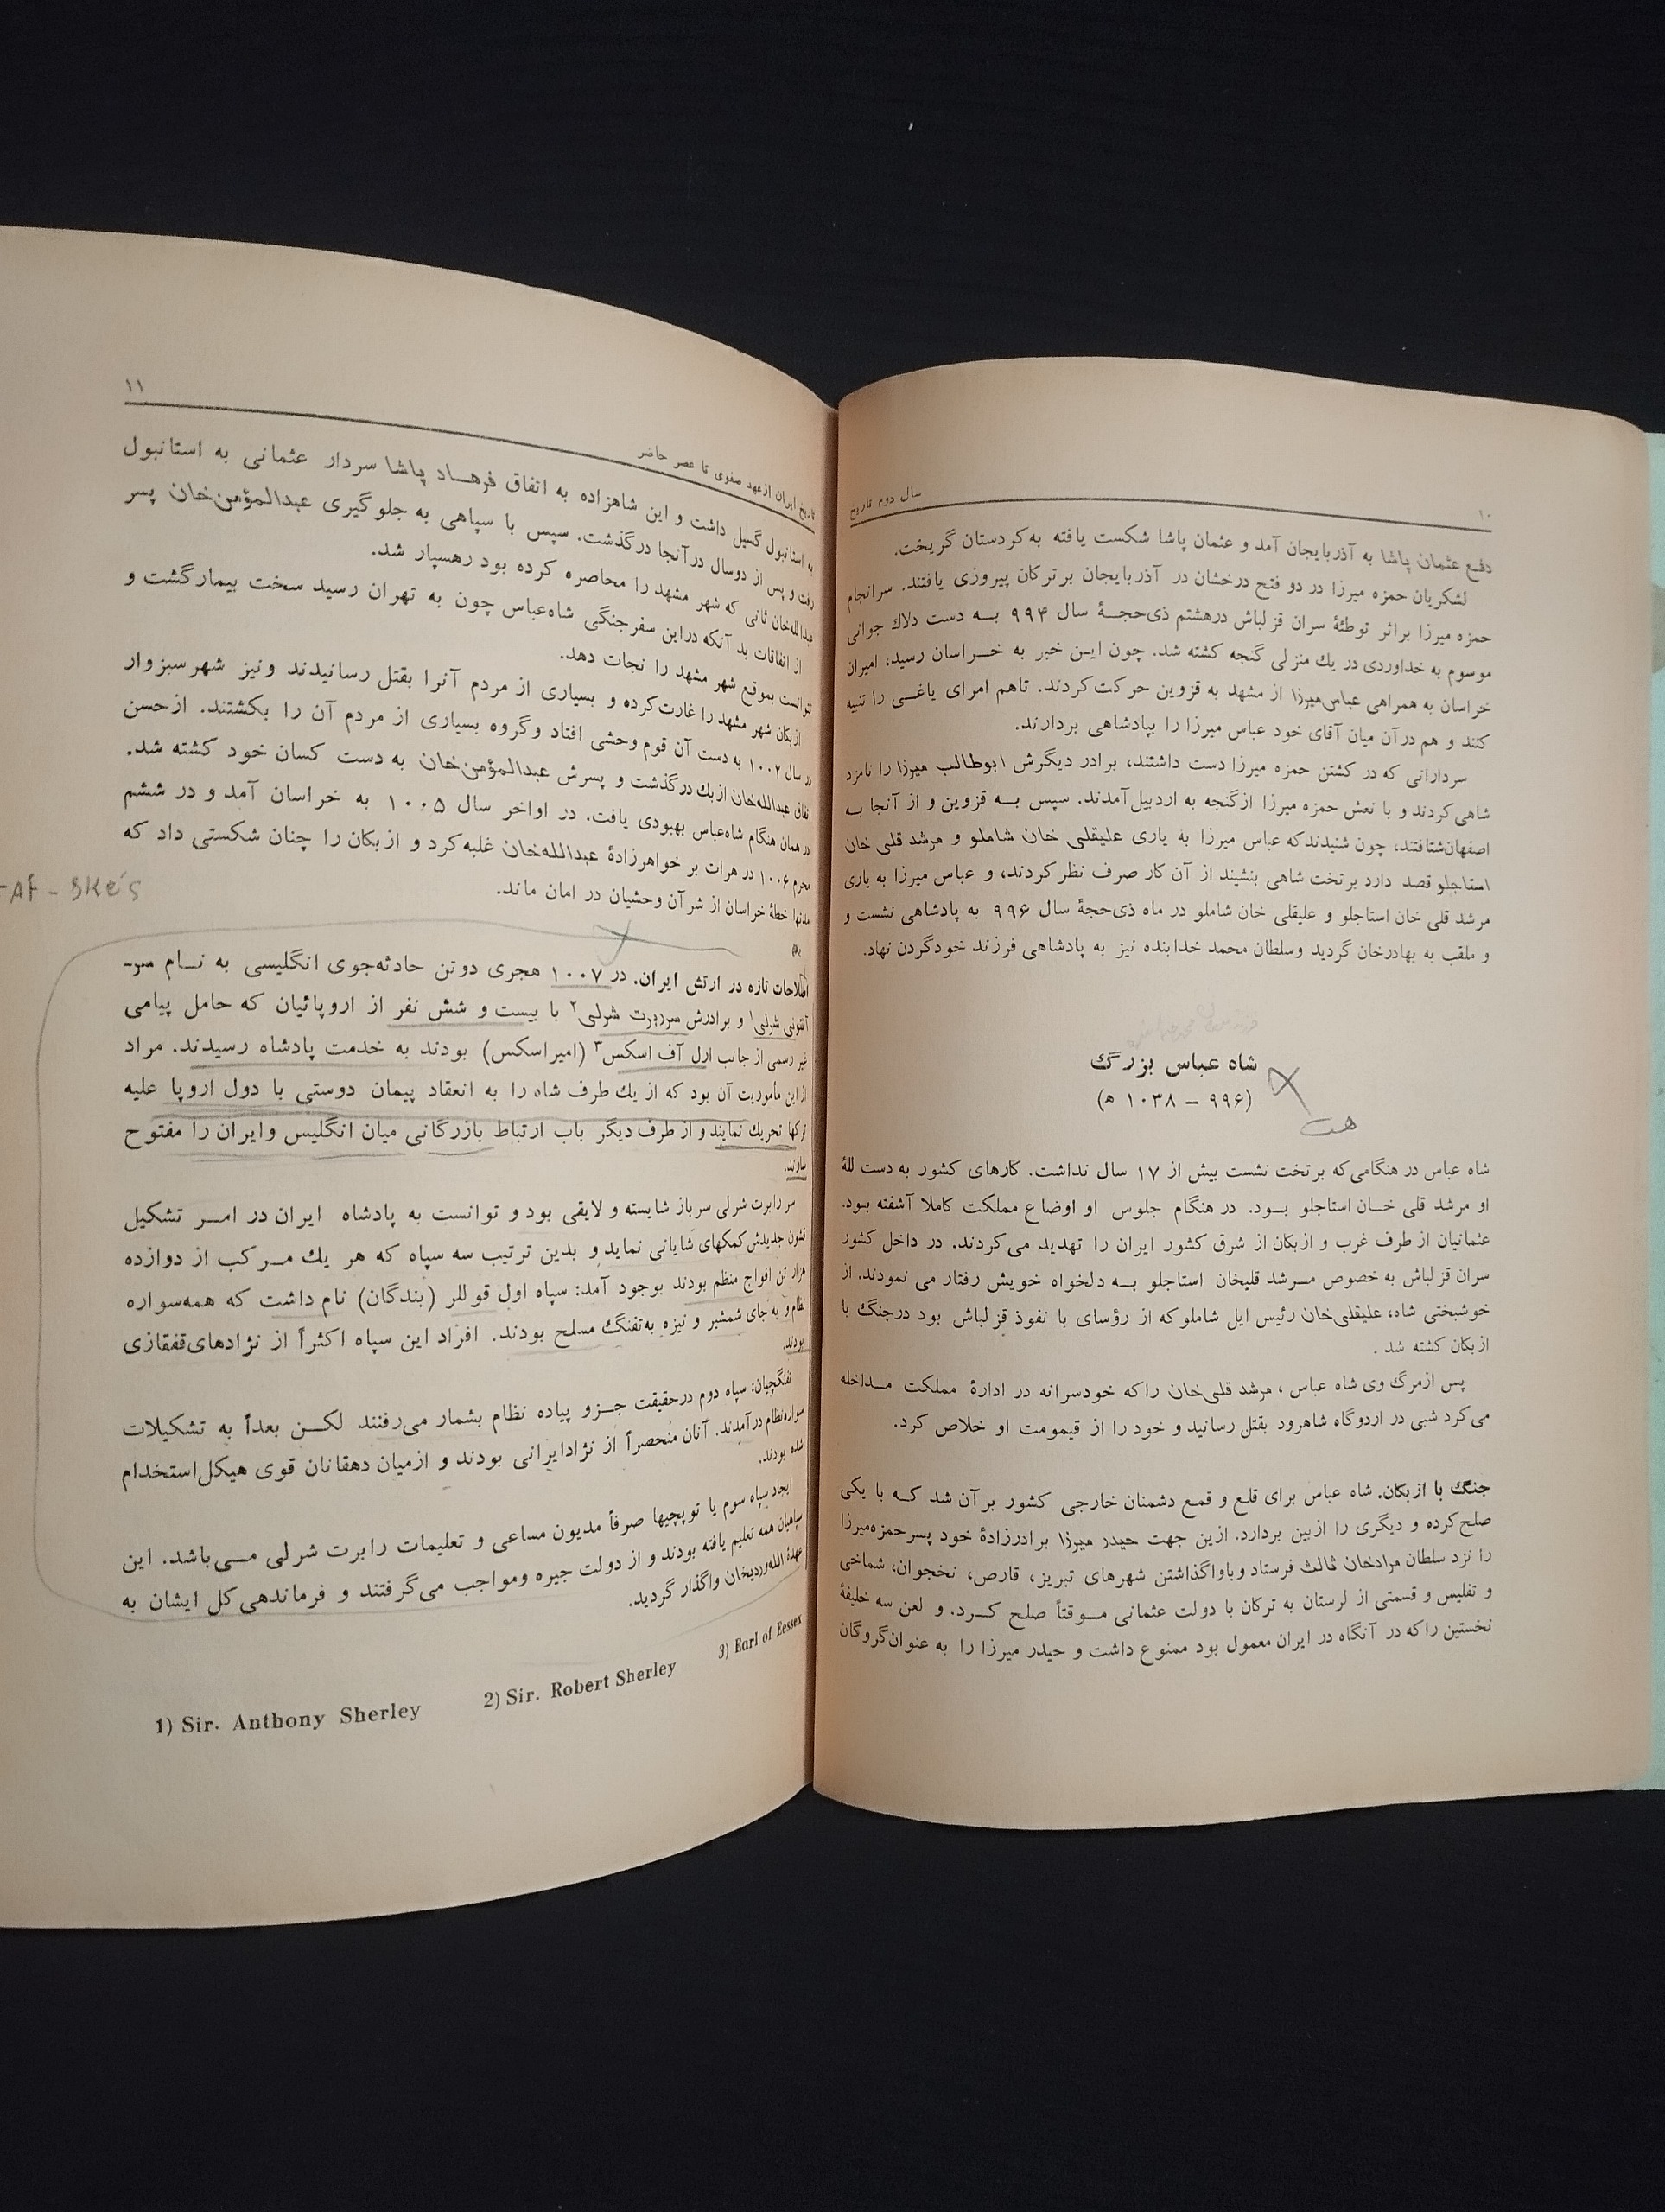 ۱۰
سال دوم تاریخ
دفع عثمان پاشا به آذربایجان آمد و عثمان پاشا شکست یافته به کردستان گریخت.
لشکریان حمزه میرزا در دو فتح درخشان در آذربایجان بر ترکان پیروزی یافتند. سرانجام
حمزه میرزا براثر توطئهٔ سران قزلباش درهشتم ذی‌حجـــهٔ سال ۹۹۴ بــه دست دلاك جوانی
موسوم به خداوردی در یك منزلی گنجه کشته شد. چون ایــن خبر به خــراسان رسید، امیران
خراسان به همراهی عباس‌میرزا از مشهد به قزوین حرکت کردند. تاهم امرای یاغــی را تنبیه
کنند و هم درآن میان آقای خود عباس میرزا را بپادشاهی بردارند.
سردارانی که در کشتن حمزه میرزا دست داشتند، برادر دیگرش ابوطالب میرزا را نامزد
شاهی کردند و با نعش حمزه میرزا ازگنجه به اردبیل آمدند. سپس بــه قزوین و از آنجا بــه
اصفهان‌شتافتند، چون شنیدند‌که عباس میرزا به یاری علیقلی خان شاملو و مرشد قلی خان
استاجلو قصد دارد بر تخت شاهی بنشیند از آن کار صرف نظر کردند، و عباس میرزا به یاری
مرشد قلی خان استاجلو و علیقلی خان شاملو در ماه ذی‌حجهٔ سال ۹۹۶ به پادشاهی نشست و
و ملقب به بهادرخان گردید وسلطان محمد خدابنده نیز به پادشاهی فرزند خودگردن نهاد.
شاه عباس بزرگ
(۹۹۶ – ۱۰۳۸ ه)
شاه عباس در هنگامی‌که بر تخت نشست بیش از ۱۷ سال نداشت. کارهای کشور به دست للهٔ
او مرشد قلی خــان استاجلو بــود. در هنگام جلوس او اوضاع مملکت کاملا آشفته بـود.
عثمانیان از طرف غرب و ازبکان از شرق کشور ایران را تهدید می‌کردند. در داخل کشور
سران قزلباش به خصوص مــرشد قلیخان استاجلو بــه دلخواه خویش رفتار می نمودند. از
خوشبختی شاه، علیقلی‌خان رئیس ایل شاملو‌که از رؤسای با نفوذ قزلباش بود درجنگ با
ازبکان کشته شد .
پس ازمرگ وی شاه عباس ، مرشد قلی‌خان را‌که خودسرانه در ادارهٔ مملکت مــداخله
می‌کرد شبی در اردوگاه شاهرود بقتل رسانید و خود را از قیمومت او خلاص کرد.
جنگ با ازبکان. شاه عباس برای قلع و قمع دشمنان خارجی کشور بر آن شد کــه با یکی
صلح‌کرده و دیگری را ازبین بردارد. ازین جهت حیدر میرزا برادرزادهٔ خود پسرحمزه‌میرزا
را نزد سلطان مرادخان ثالث فرستاد و با واگذاشتن شهرهای تبریز، قارص، نخجوان، شماخی
و تفلیس و قسمتی از لرستان به ترکان با دولت عثمانی مــوقتاً صلح کــرد. و لعن سه خلیفهٔ
نخستین را‌که در آنگاه در ایران معمول بود ممنوع داشت و حیدر میرزا را به عنوان‌گروگان
۱۱
تاریخ ایران ازعهد صفوی تا عصر حاضر
به استانبول گسیل داشت و این شاهزاده به اتفاق فرهــاد پاشا سردار عثمانی به استانبول
رفت و پس از دوسال درآنجا درگذشت. سپس با سپاهی به جلوگیری عبدالمؤمن‌خان پسر
عبدالله‌خان ثانی که شهر مشهد را محاصره کرده بود رهسپار شد.
از اتفاقات بد آنکه دراین سفرجنگی شاه‌عباس چون به تهران رسید سخت بیمارگشت و
نتوانست بموقع شهر مشهد را نجات دهد.
ازبکان شهر مشهد را غارت‌کرده و بسیاری از مردم آنرا بقتل رسانیدند ونیز شهرسبزوار
در سال ۱۰۰۲ به دست آن قوم وحشی افتاد وگروه بسیاری از مردم آن را بکشتند. ازحسن
اتفاق عبدالله‌خان ازبك درگذشت و پسرش عبدالمؤمن‌خان به دست کسان خود کشته شد.
در همان هنگام شاه‌عباس بهبودی یافت. در اواخر سال ۱۰۰۵ به خراسان آمد و در ششم
محرم ۱۰۰۶ در هرات بر خواهرزادهٔ عبدالله‌خان غلبه‌کرد و ازبکان را چنان شکستی داد که
مدتها خطهٔ خراسان از شر آن وحشیان در امان ماند.
اصلاحات تازه در ارتش ایران. در ۱۰۰۷ هجری دوتن حادثه‌جوی انگلیسی به نــام سر-
آنتونی شرلی۱ و برادرش سررابرت شرلی۲ با بیست و شش نفر از اروپائیان که حامل پیامی
غیر رسمی از جانب ارل آف اسکس۳ (امیراسکس) بودند به خدمت پادشاه رسیدند. مراد
از این مأموریت آن بود که از یك طرف شاه را به انعقاد پیمان دوستی با دول اروپا علیه
ترکها تحریك نمایند و از طرف دیگر باب ارتباط بازرگانی میان انگلیس وایران را مفتوح
سازند.
سر رابرت شرلی سرباز شایسته و لایقی بود و توانست به پادشاه ایران در امــر تشکیل
قشون جدیدش‌کمکهای شایانی نماید و بدین ترتیب سه سپاه که هر یك مــرکب از دوازده
هزار تن افواج منظم بودند بوجود آمد: سپاه اول قوللر (بندگان) نام داشت که همه‌سواره
نظام و به جای شمشیر و نیزه به‌تفنگ مسلح بودند. افراد این سپاه اکثراً از نژادهای‌قفقازی
بودند.
تفنگچیان: سپاه دوم درحقیقت جــزو پیاده نظام بشمار می‌رفتند لکــن بعداً به تشکیلات
سواره‌نظام درآمدند. آنان منحصراً از نژادایرانی بودند و ازمیان دهقانان قوی هیکل‌استخدام
شده بودند.
ایجاد سپاه سوم یا توپچیها صرفاً مدیون مساعی و تعلیمات رابرت شرلی مــی‌باشد. این
سپاهیان همه تعلیم یافته بودند و از دولت جیره ومواجب می‌گرفتند و فرماندهی کل ایشان به
عهدهٔ الله‌وردیخان واگذار گردید.
1) Sir. Anthony Sherley 2) Sir. Robert Sherley 3) Earl of Eessex